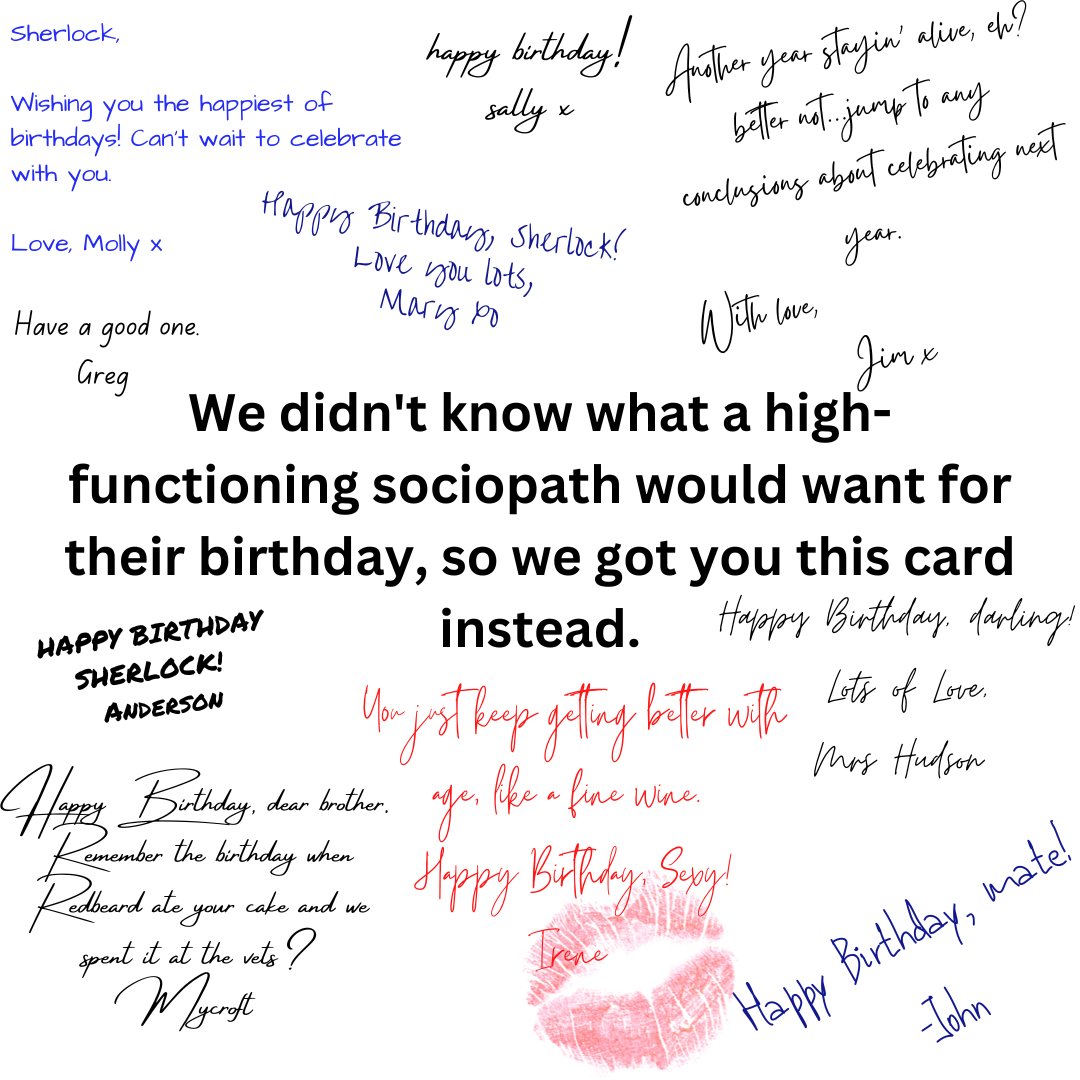 Sherlock,
Wishing you the happiest of
birthdays! Can't wait to celebrate
with you.
Love, Molly x
happy birthday!
sally x
Another year stayin' alive, eh?
better not...jump to any
conclusions about celebrating next
year.
With love,
Jim x
Happy Birthday, Sherlock!
Love you lots,
Mary xo
Have a good one.
Greg
We didn't know what a high-
functioning sociopath would want for
their birthday, so we got you this card
instead.
HAPPY BIRTHDAY
SHERLOCK!
ANDERSON
Happy Birthday, darling!
Lots of Love,
Mrs Hudson
You just keep getting better with
age, like a fine wine.
Happy Birthday, Sexy!
Irene
Happy Birthday, dear brother.
Remember the birthday when
Redbeard ate your cake and we
spent it at the vets?
Mycroft
Happy Birthday, mate!
-John